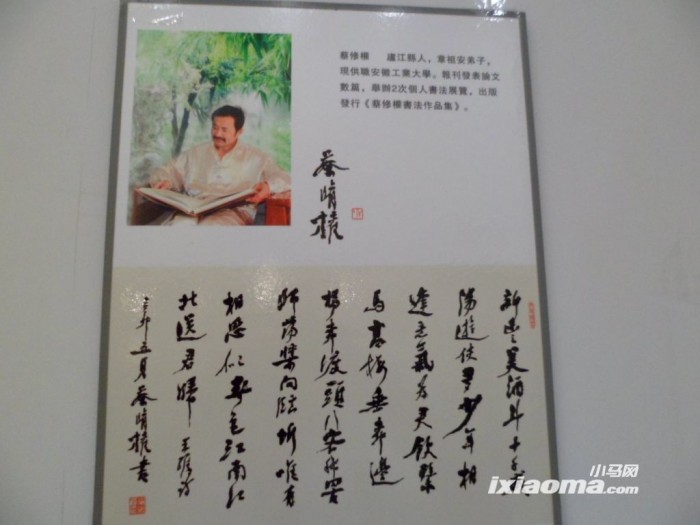 蔡修權 廬江縣人，章祖安弟子，
現供職安徽工業大學。報刊發表論文
數篇，舉辦2次個人書法展覽，出版
發行《蔡修權書法作品集》。
蔡脩權
新豐美酒斗十千咸
陽遊俠多少年相
逢意氣為君飲繫
馬高樓垂柳邊
楊柳渡頭行客稀罟
師蕩槳向臨圻唯有
相思似春色江南江
北送君歸 王維詩
辛卯五月蔡脩權書
小马网
ixiaoma.com